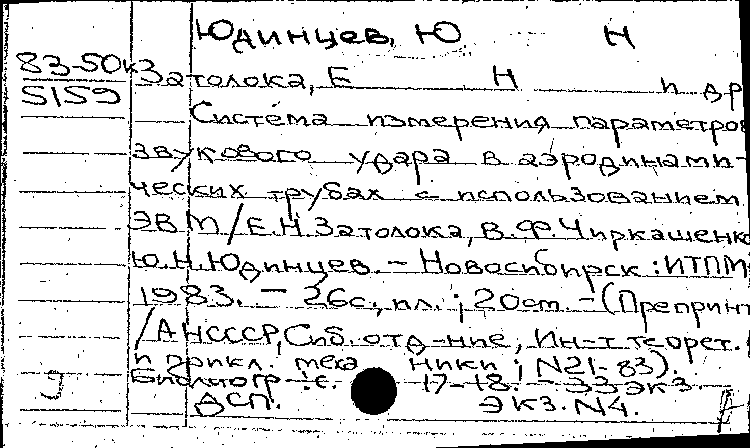 Юдинцев, Ю Н
83-50к Затолока, Е Н и др
5159
Система измерения параметров
звукового удара в аэродинами-
ческих трубах с использованием
ЭВМ/Е.Н.Затолока, В.Ф.Чиркашенко
Ю.Н.Юдинцев. – Новосибирск: ИТПМ
1983. – 26с, ил.; 20см. – (Препринт
/АН СССР, Сиб. отд-ние, Ин-т теорет.
и прикл. меха ники; N21-83).
Библиогр.: с. 17-18. – 33 экз
ДСП. Экз. N4.